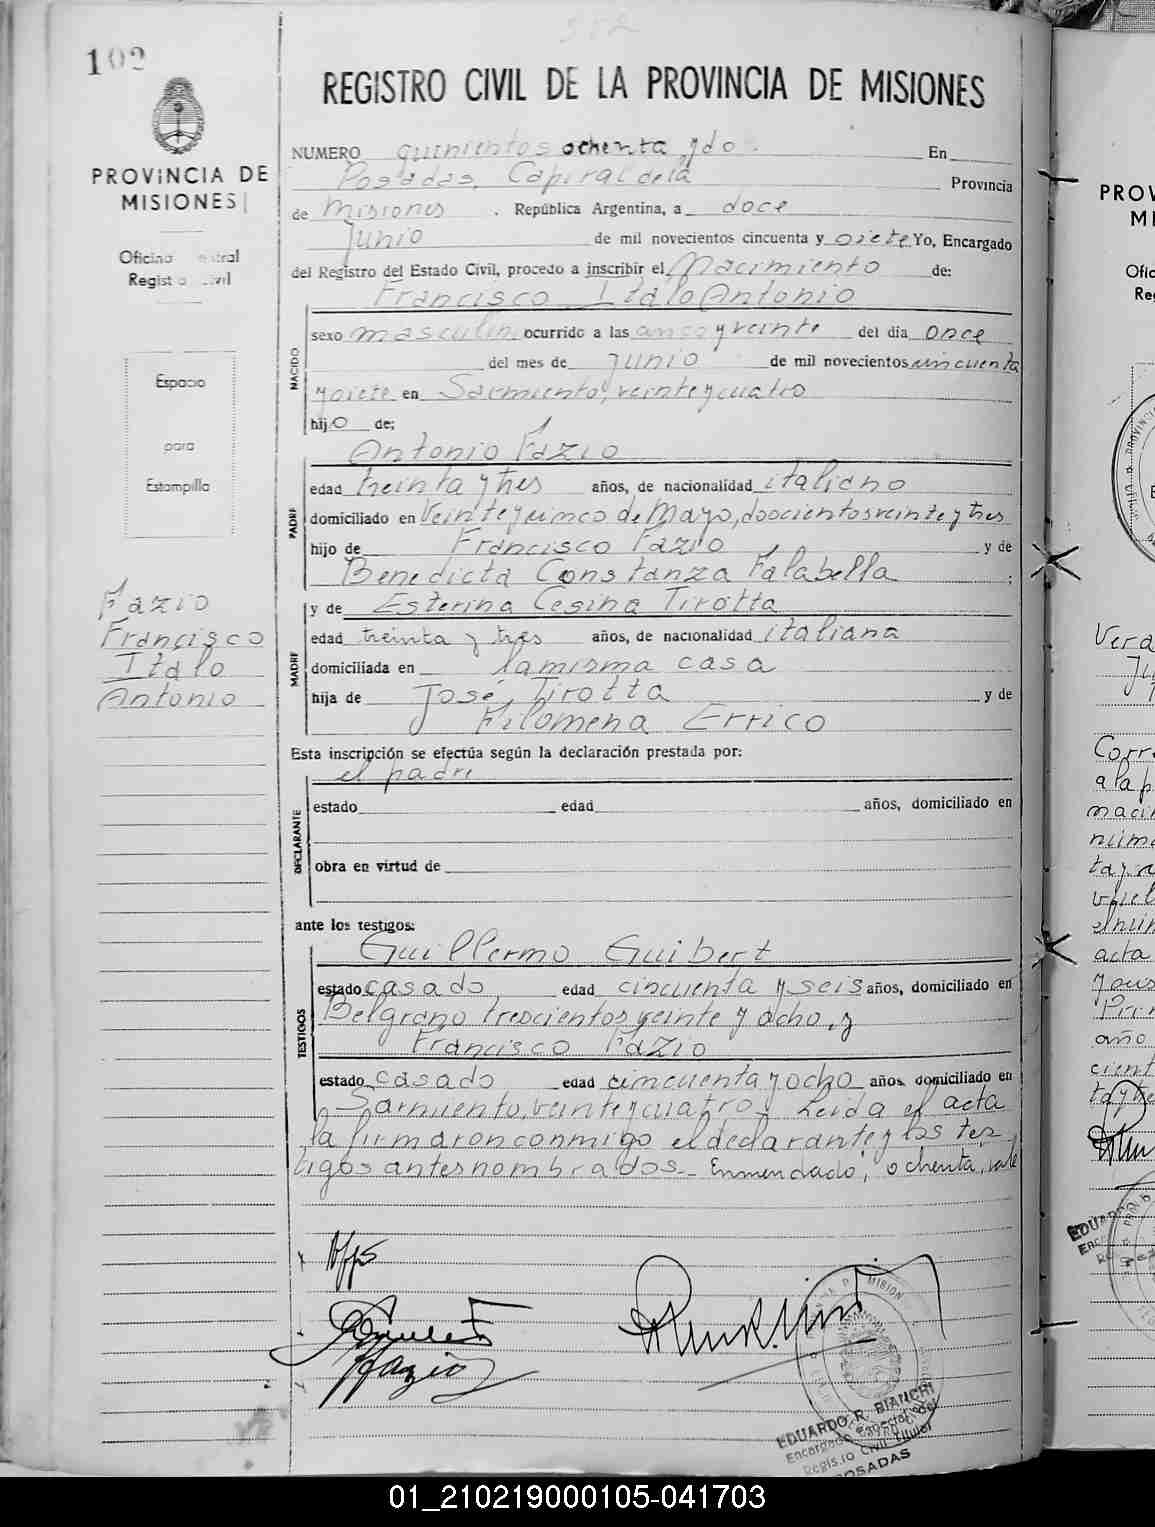 102
582
PROVINCIA DE
MISIONES
Oficina Central
Registro Civil
Espacio
para
Estampilla
Fazio
Francisco
Italo
Antonio
REGISTRO CIVIL DE LA PROVINCIA DE MISIONES
NUMERO quinientos ochenta y do En
Posadas, Capital de la Provincia
de Misiones . República Argentina, a doce
Junio de mil novecientos cincuenta y siete Yo, Encargado
del Registro del Estado Civil, procedo a inscribir el Nacimiento de:
Francisco Italo Antonio
NACIDO
sexo masculino ocurrido a las cinco y veinte del día once
del mes de Junio de mil novecientos cincuenta
y siete en Sarmiento, veinte y cuatro
hijo de:
Antonio Fazio
PADRE
edad treinta y tres años, de nacionalidad italiano
domiciliado en Veinte y cinco de Mayo, doscientos veinte y tres
hijo de Francisco Fazio y de
Benedicta Constanza Falabella
MADRE
y de Esterina Cesina Tirotta
edad treinta y tres años, de nacionalidad italiana
domiciliada en la misma casa
hija de José Tirotta y de
Filomena Errico
Esta inscripción se efectúa según la declaración prestada por:
el padre
DECLARANTE
estado edad años, domiciliado en
obra en virtud de
ante los testigos:
Guillermo Guibert
TESTIGOS
estado casado edad cincuenta y seis años, domiciliado en
Belgrano trescientos veinte y ocho, y
Francisco Fazio
estado casado edad cincuenta y ocho años, domiciliado en
Sarmiento, veinte y cuatro. Leida el acta
la firmaron conmigo el declarante y los tes
tigos antes nombrados. Enmendado; ochenta, vale
Fazio
EDUARDO R. BIANCHI
Encargado
Registro Civil Titular
POSADAS
PROV
MI
Ofic
Re
Vera
Corre
a la p
naci
núme
acta
año
cient
EDUAR
01_210219000105-041703